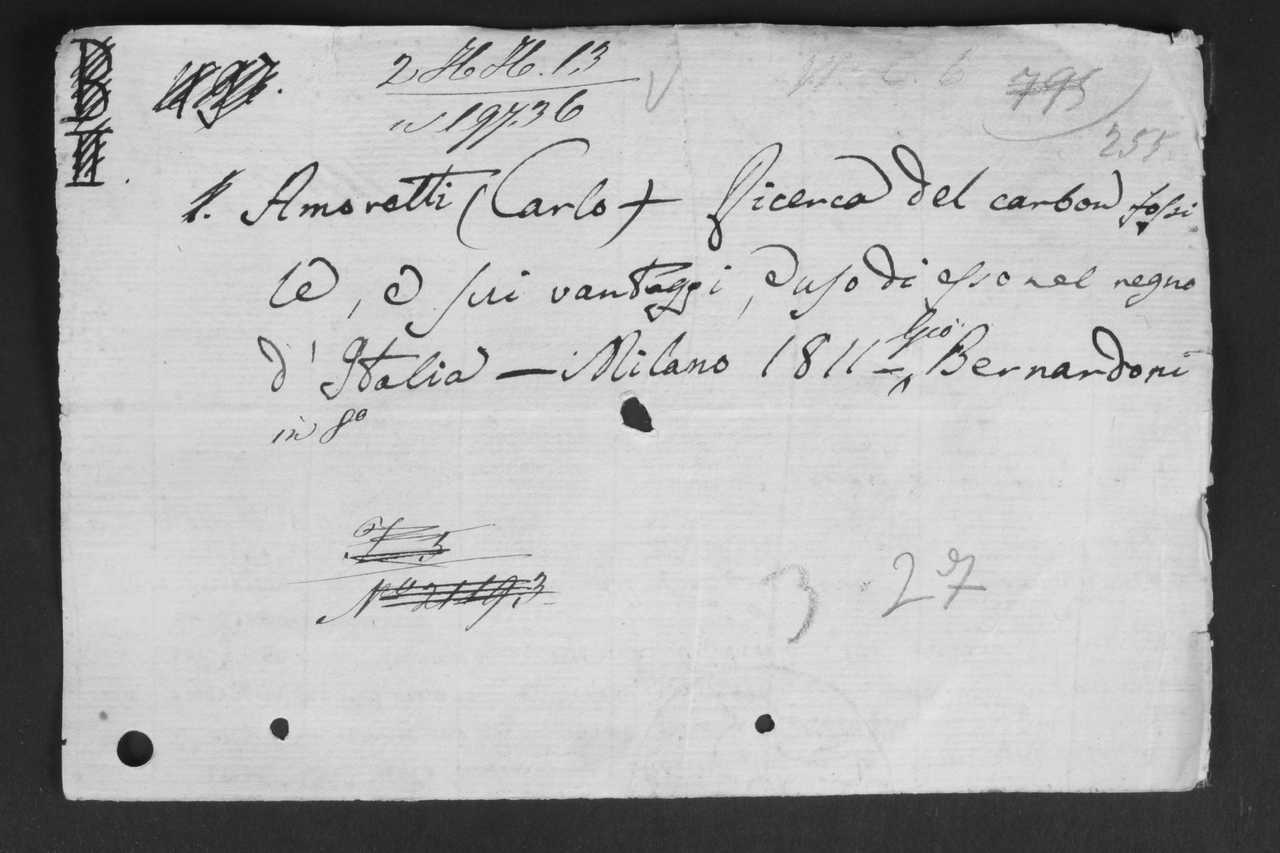 2 H H. 13
n 197.36
795
255
1. Amoretti (Carlo) Ricerca del carbon fossi
le, e sui vantaggi, ed uso di esso nel regno
d'Italia — Milano 1811 - Gio. Bernardoni
in 8º
Nº 2119.3
3 27